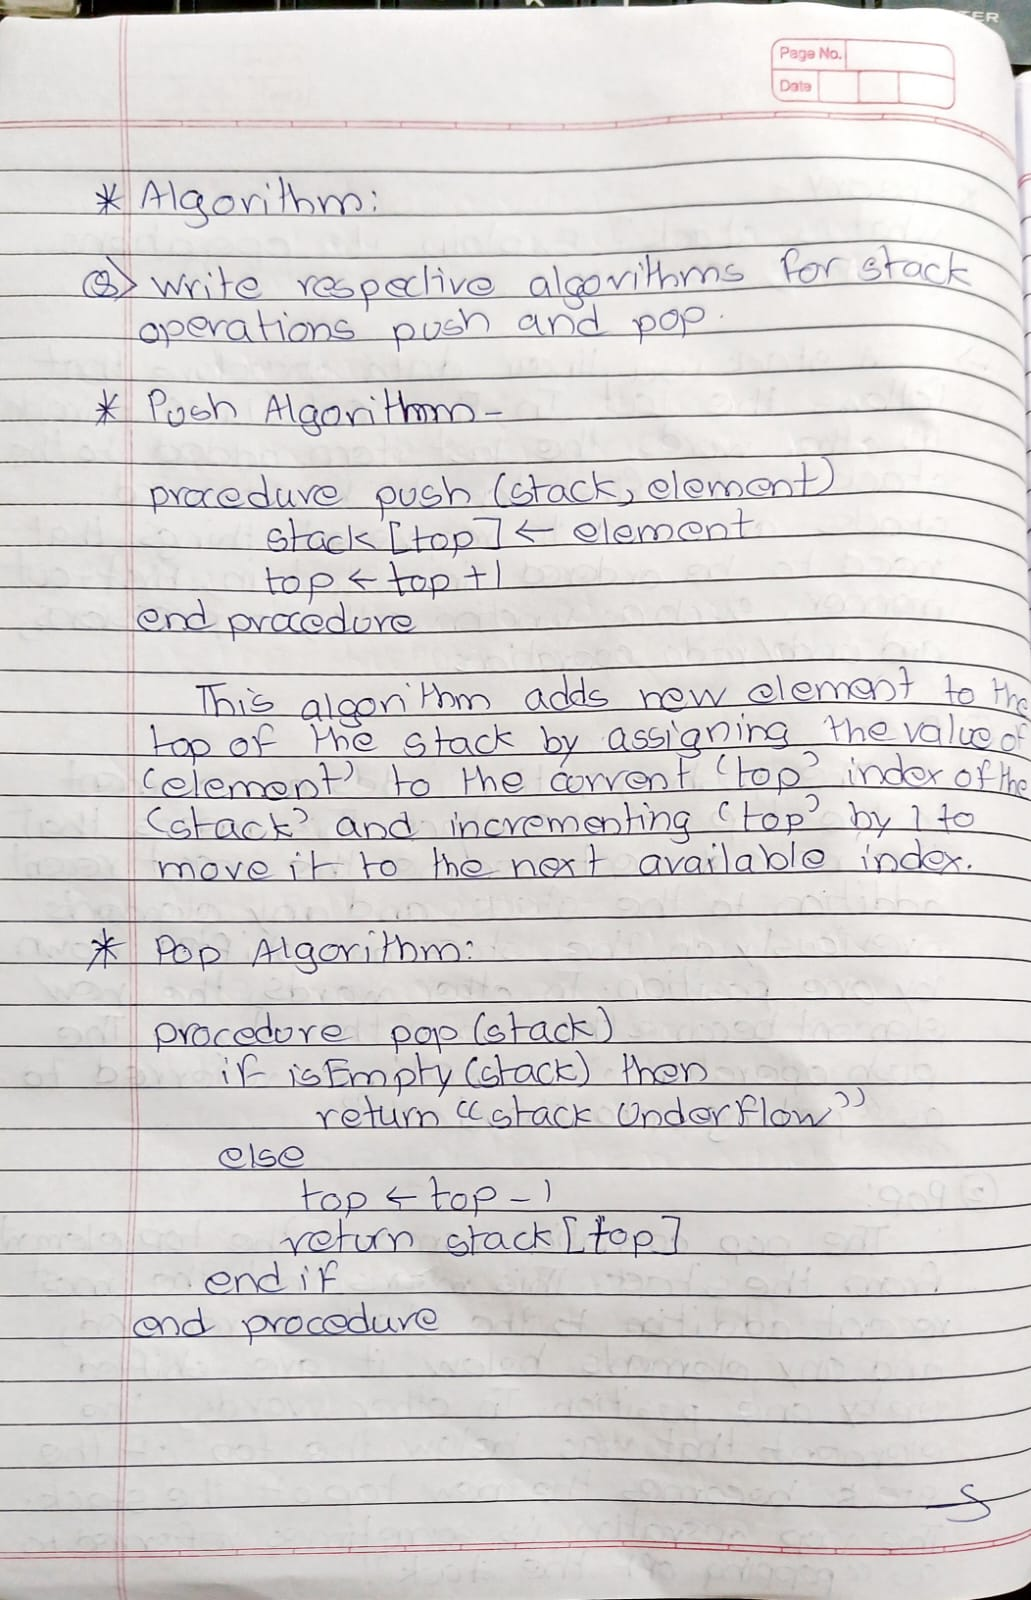 ER
Page No.
Date
* Algorithm:
Q) Write respective algorithms for stack
operations push and pop.
* Push Algorithm -
procedure push (stack, element)
stack [top] ← element
top ← top + 1
end procedure
This algorithm adds new element to the
top of the stack by assigning the value of
'element' to the current 'top' index of the
'stack' and incrementing 'top' by 1 to
move it to the next available index.
* Pop Algorithm:
procedure pop (stack)
if isEmpty (stack) then
return "stack Underflow"
else
top ← top - 1
return stack [top]
end if
end procedure